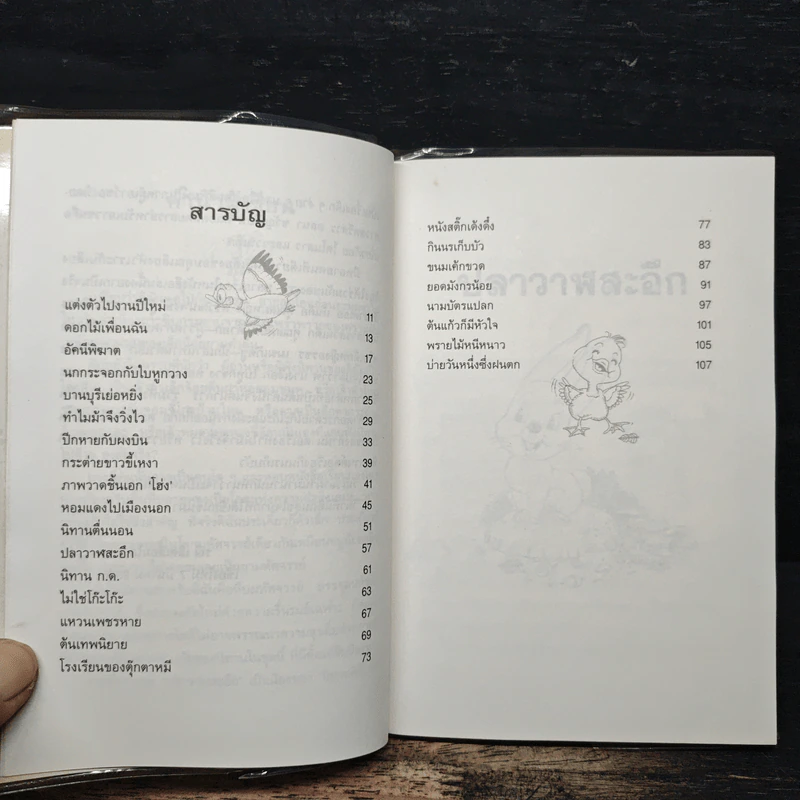 สารบัญ
แต่งตัวไปงานปีใหม่ 11
ดอกไม้เพื่อนฉัน 13
อัคนีพิฆาต 17
นกกระจอกกับใบหูกวาง 23
บานบุรีเย่อหยิ่ง 25
ทำไมม้าจึงวิ่งไว 29
ปีกหายกับผงบิน 33
กระต่ายขาวขี้เหงา 39
ภาพวาดชิ้นเอก 'โฮ่ง' 41
หอมแดงไปเมืองนอก 45
นิทานตื่นนอน 51
ปลาวาฬสะอึก 57
นิทาน ก.ด. 61
ไม่ใช่โก๊ะโก๊ะ 63
แหวนเพชรหาย 67
ต้นเทพนิยาย 69
โรงเรียนของตุ๊กตาหมี 73
หนังสติ๊กเด้งดึ๋ง 77
กินนรเก็บบัว 83
ขนมเค้กขวด 87
ยอดมังกรน้อย 91
นามบัตรแปลก 97
ต้นแก้วก็มีหัวใจ 101
พรายไม้หนีหนาว 105
บ่ายวันหนึ่งซึ่งฝนตก 107
ปลาวาฬสะอึก